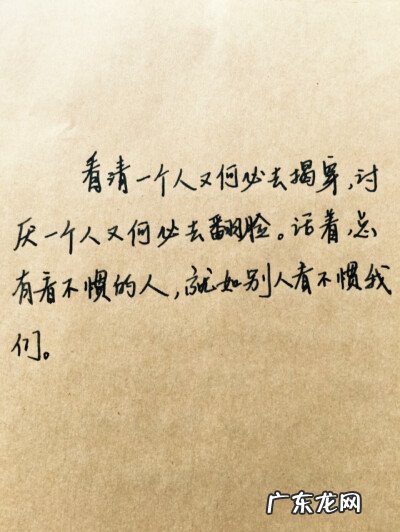 看清一个人又何必去揭穿,讨
厌一个人又何必去翻脸。活着,总
有看不惯的人,就如别人看不惯我
们。
广东龙网